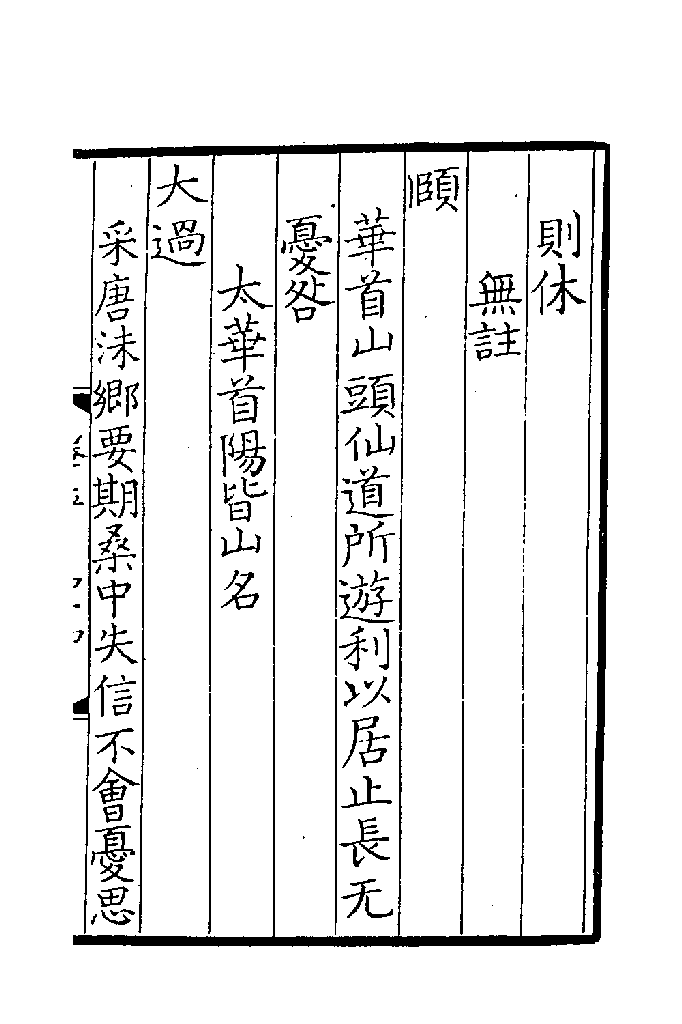 則休
無註
頤
華首山頭仙道所遊利以居止長无
憂咎
太華首陽皆山名
大過
采唐沬鄉要期桑中失信不會憂思